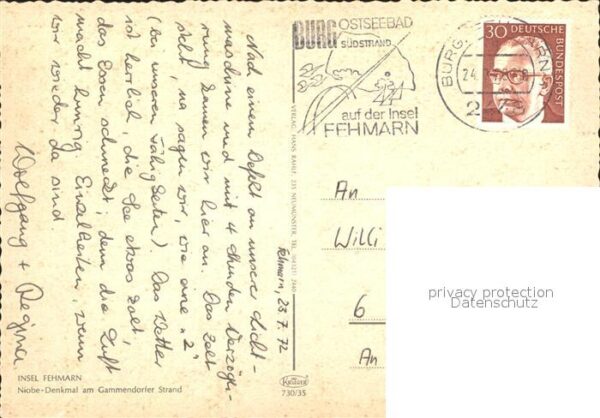 Nach einem Defekt an unserer Licht-
maschine und mit 4 Stunden Verzöge-
rung kamen wir hier an. Das Zelt
steht, na sagen wir, wie eine „2"
(bei unseren Fähigkeiten). Das Wetter
ist herrlich, die See etwas kalt,
das Essen schmeckt, denn die Luft
macht hungrig. Einzelheiten, wenn
wir wieder da sind.
Wolfgang + Regina
Fehmarn, 23.7.72
INSEL FEHMARN
Niobe-Denkmal am Gammendorfer Strand
VERLAG HANS RAHLF 235 NEUMÜNSTER, TEL.
Krüger
730/35
BURG OSTSEEBAD
SÜDSTRAND
auf der Insel
FEHMARN
BURG
24.
30
DEUTSCHE BUNDESPOST
An
Willi
6
An
privacy protection
Datenschutz